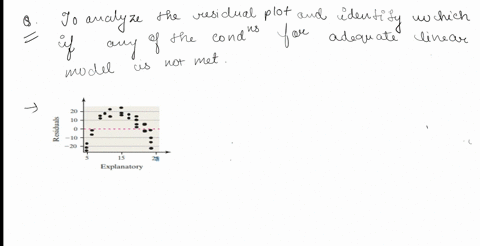 Q. To analyze the residual plot and identify which
if any of the condⁿˢ for adequate linear
model is not met.
→
20
10
0
-10
-20
Residuals
5 15 25
Explanatory